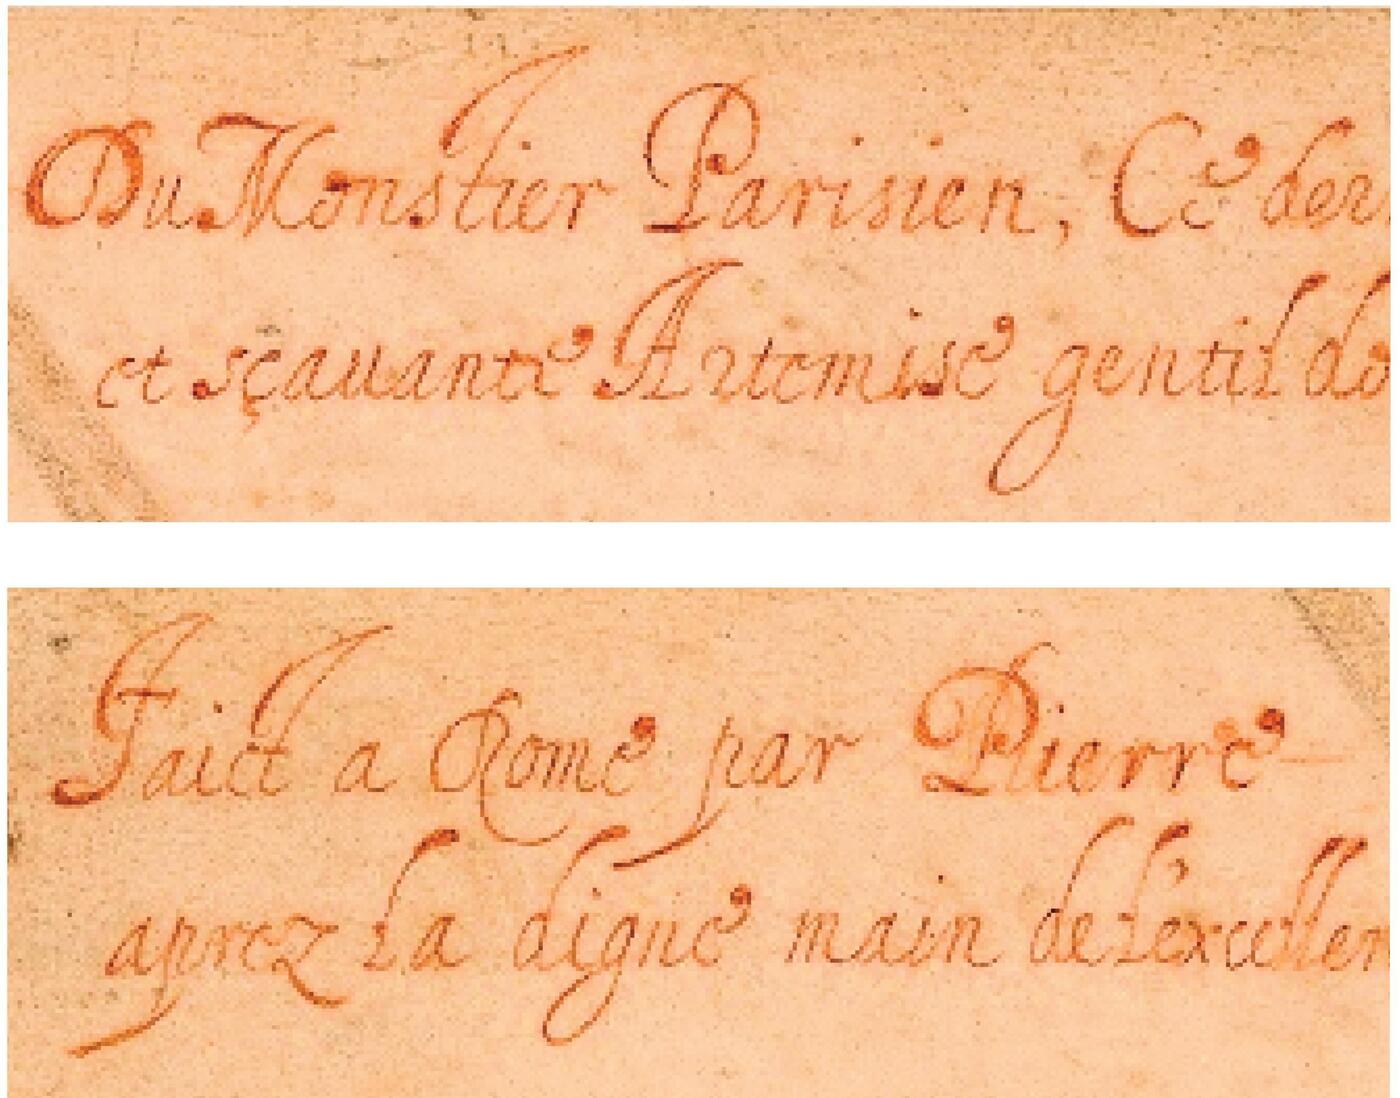 Du Monstier Parisien, Ce der
et sçauante Artemise gentil do
Faict a Rome par Pierre
aprez la digne main de l'excellen